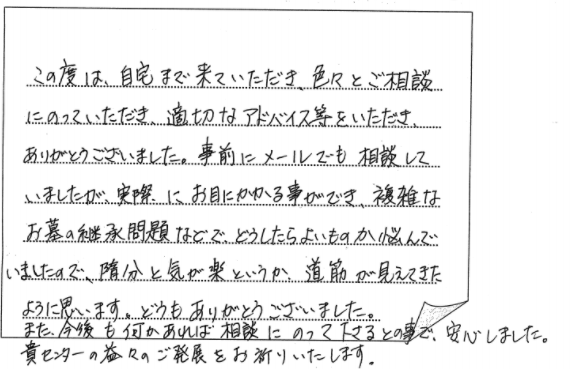 この度は、自宅まで来ていただき、色々とご相談
にのっていただき、適切なアドバイス等をいただき、
ありがとうございました。事前にメールでも相談して
いましたが、実際に、お目にかかる事ができ、複雑な
お墓の継承問題などで、どうしたらよいものか悩んで
いましたので、随分と気が楽というか、道筋が見えてきた
ように思います。どうもありがとうございました。
また、今後も何かあれば相談にのって下さるとの事で、安心しました。
貴センターの益々のご発展をお祈りいたします。